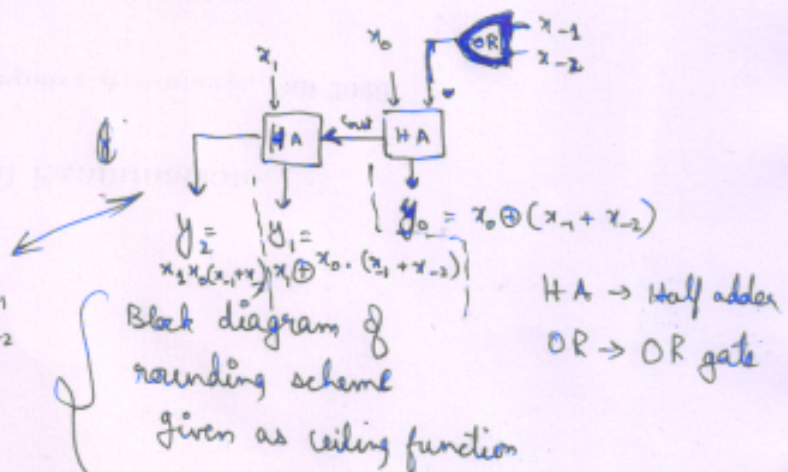 x₋₁
OR
x₋₂
x₀
x₁
HA
Cout
HA
y₀ = x₀ ⊕ (x₋₁ + x₋₂)
y₂ =
y₁ =
x₁ ⊕ x₀ · (x₋₁ + x₋₂)
HA → Half adder
OR → OR gate
Block diagram of
rounding scheme
given as ceiling function